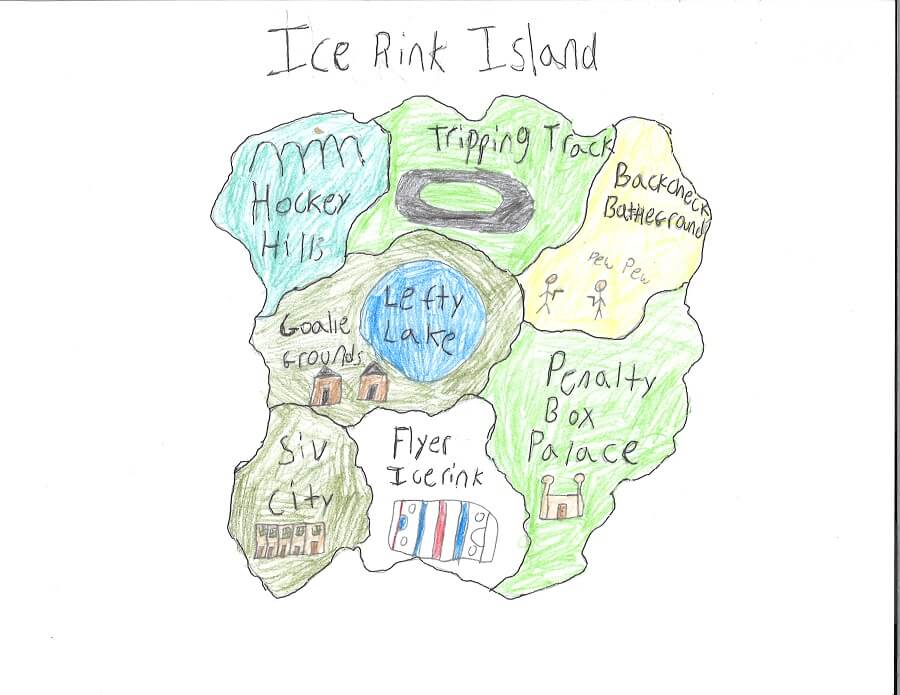 Ice Rink Island
Tripping Track
Hockey
Hills
Backcheck
Battleground
Pew Pew
Lefty
Lake
Goalie
Grounds
Penalty
Box
Palace
Siv
City
Flyer
Icerink